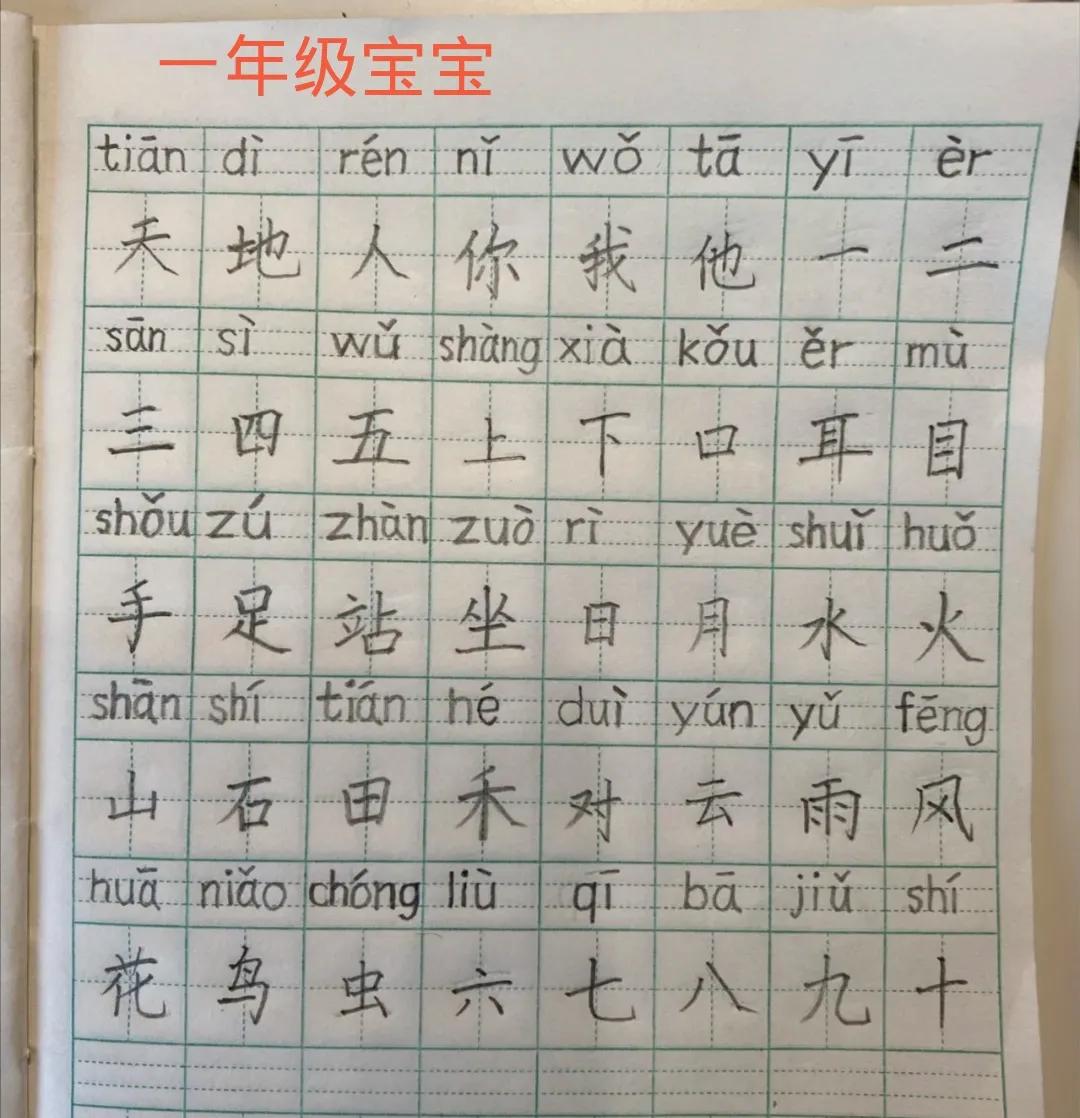 一年级宝宝
tiān dì rén nǐ wǒ tā yī èr
天 地 人 你 我 他 一 二
sān sì wǔ shàng xià kǒu ěr mù
三 四 五 上 下 口 耳 目
shǒu zú zhàn zuò rì yuè shuǐ huǒ
手 足 站 坐 日 月 水 火
shān shí tián hé duì yún yǔ fēng
山 石 田 禾 对 云 雨 风
huā niǎo chóng liù qī bā jiǔ shí
花 鸟 虫 六 七 八 九 十